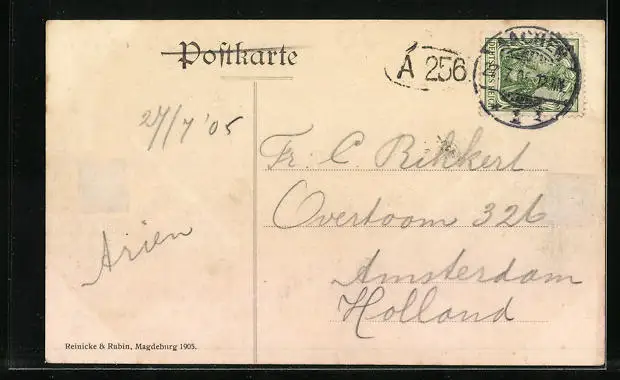 Postkarte
A 256
AACHEN
27/7 '05
Fr. C. Rikkert
Overtoom 326
Arien
Amsterdam
Holland
Reinicke & Rubin, Magdeburg 1905.